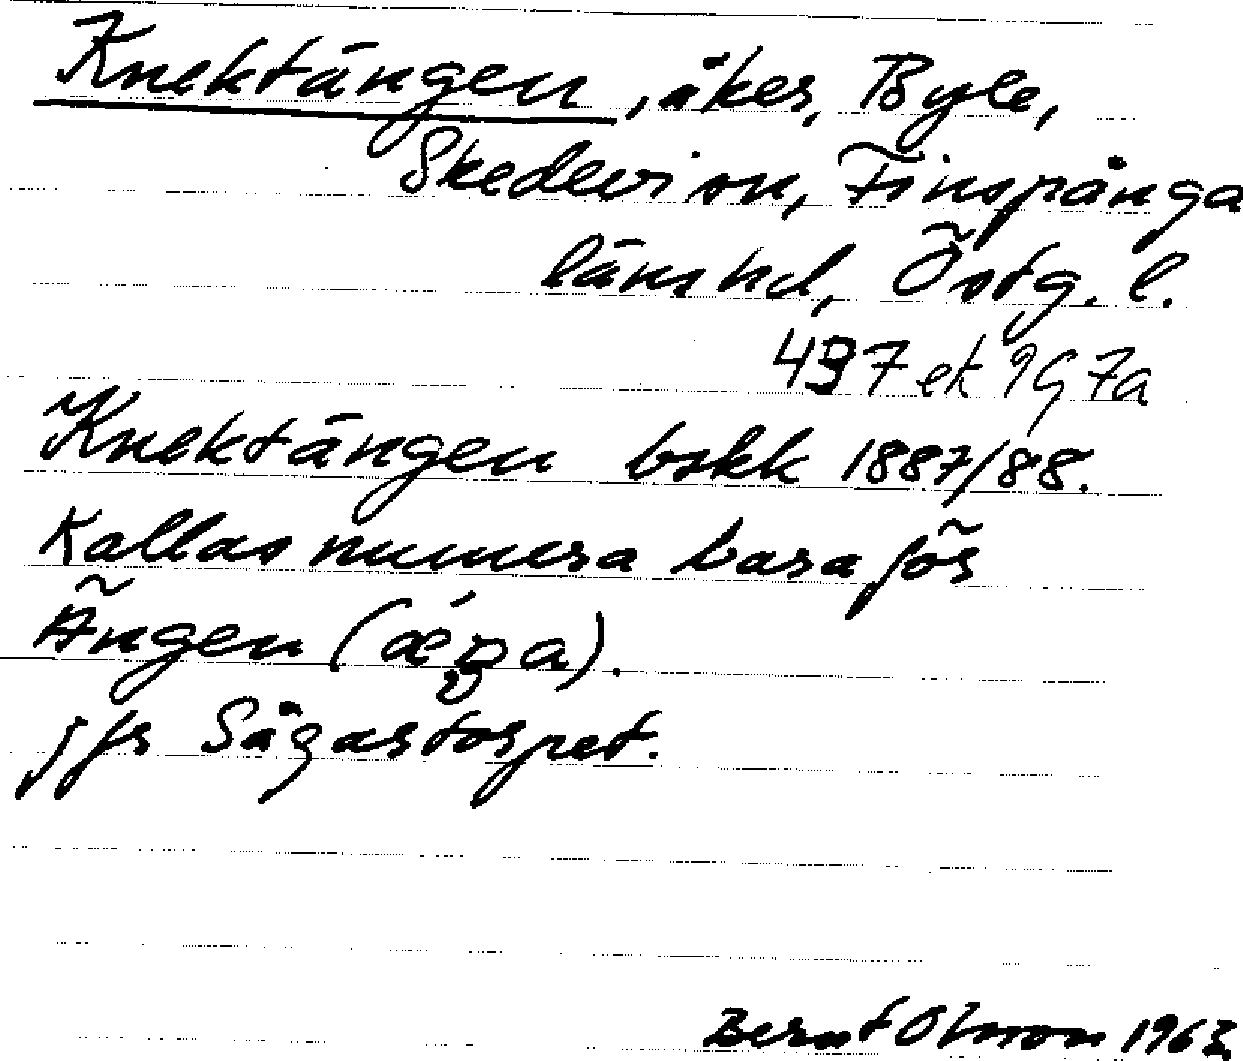 Knektängen, åker, Byle,
Skedevi sn, Finspånga
läns hd, Östg. l.
497 ek 9G 7a
Knektängen bskk 1887/88.
Kallas numera bara för
Ängen (
jfr Sågartorpet.
Bernt Olsson 1963